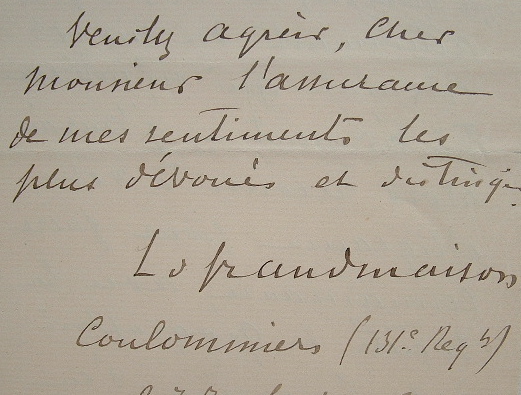 Veuillez agréer, cher
monsieur l'assurance
de mes sentiments les
plus dévoués et distingués
L de Grandmaison
Coulommiers (131e Regt)